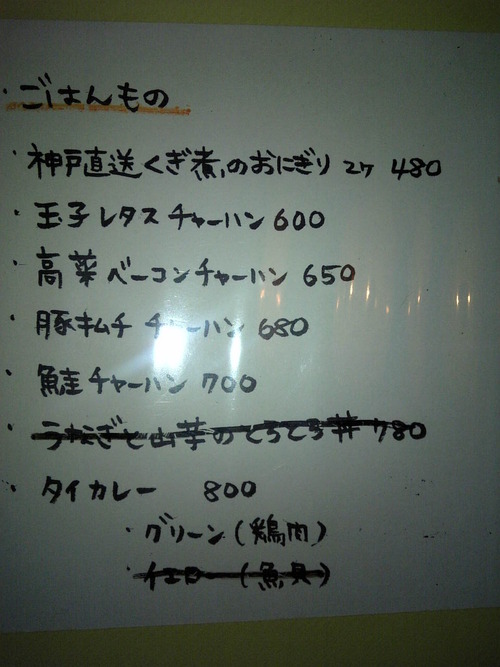 ・ごはんもの
・神戸直送くぎ煮のおにぎり 2ケ 480
・玉子レタスチャーハン 600
・高菜ベーコンチャーハン 650
・豚キムチ チャーハン 680
・鮭チャーハン 700
・うなぎと山芋のとろとろ丼 780
・タイカレー 800
・グリーン(鶏肉)
・イエロー(魚貝)